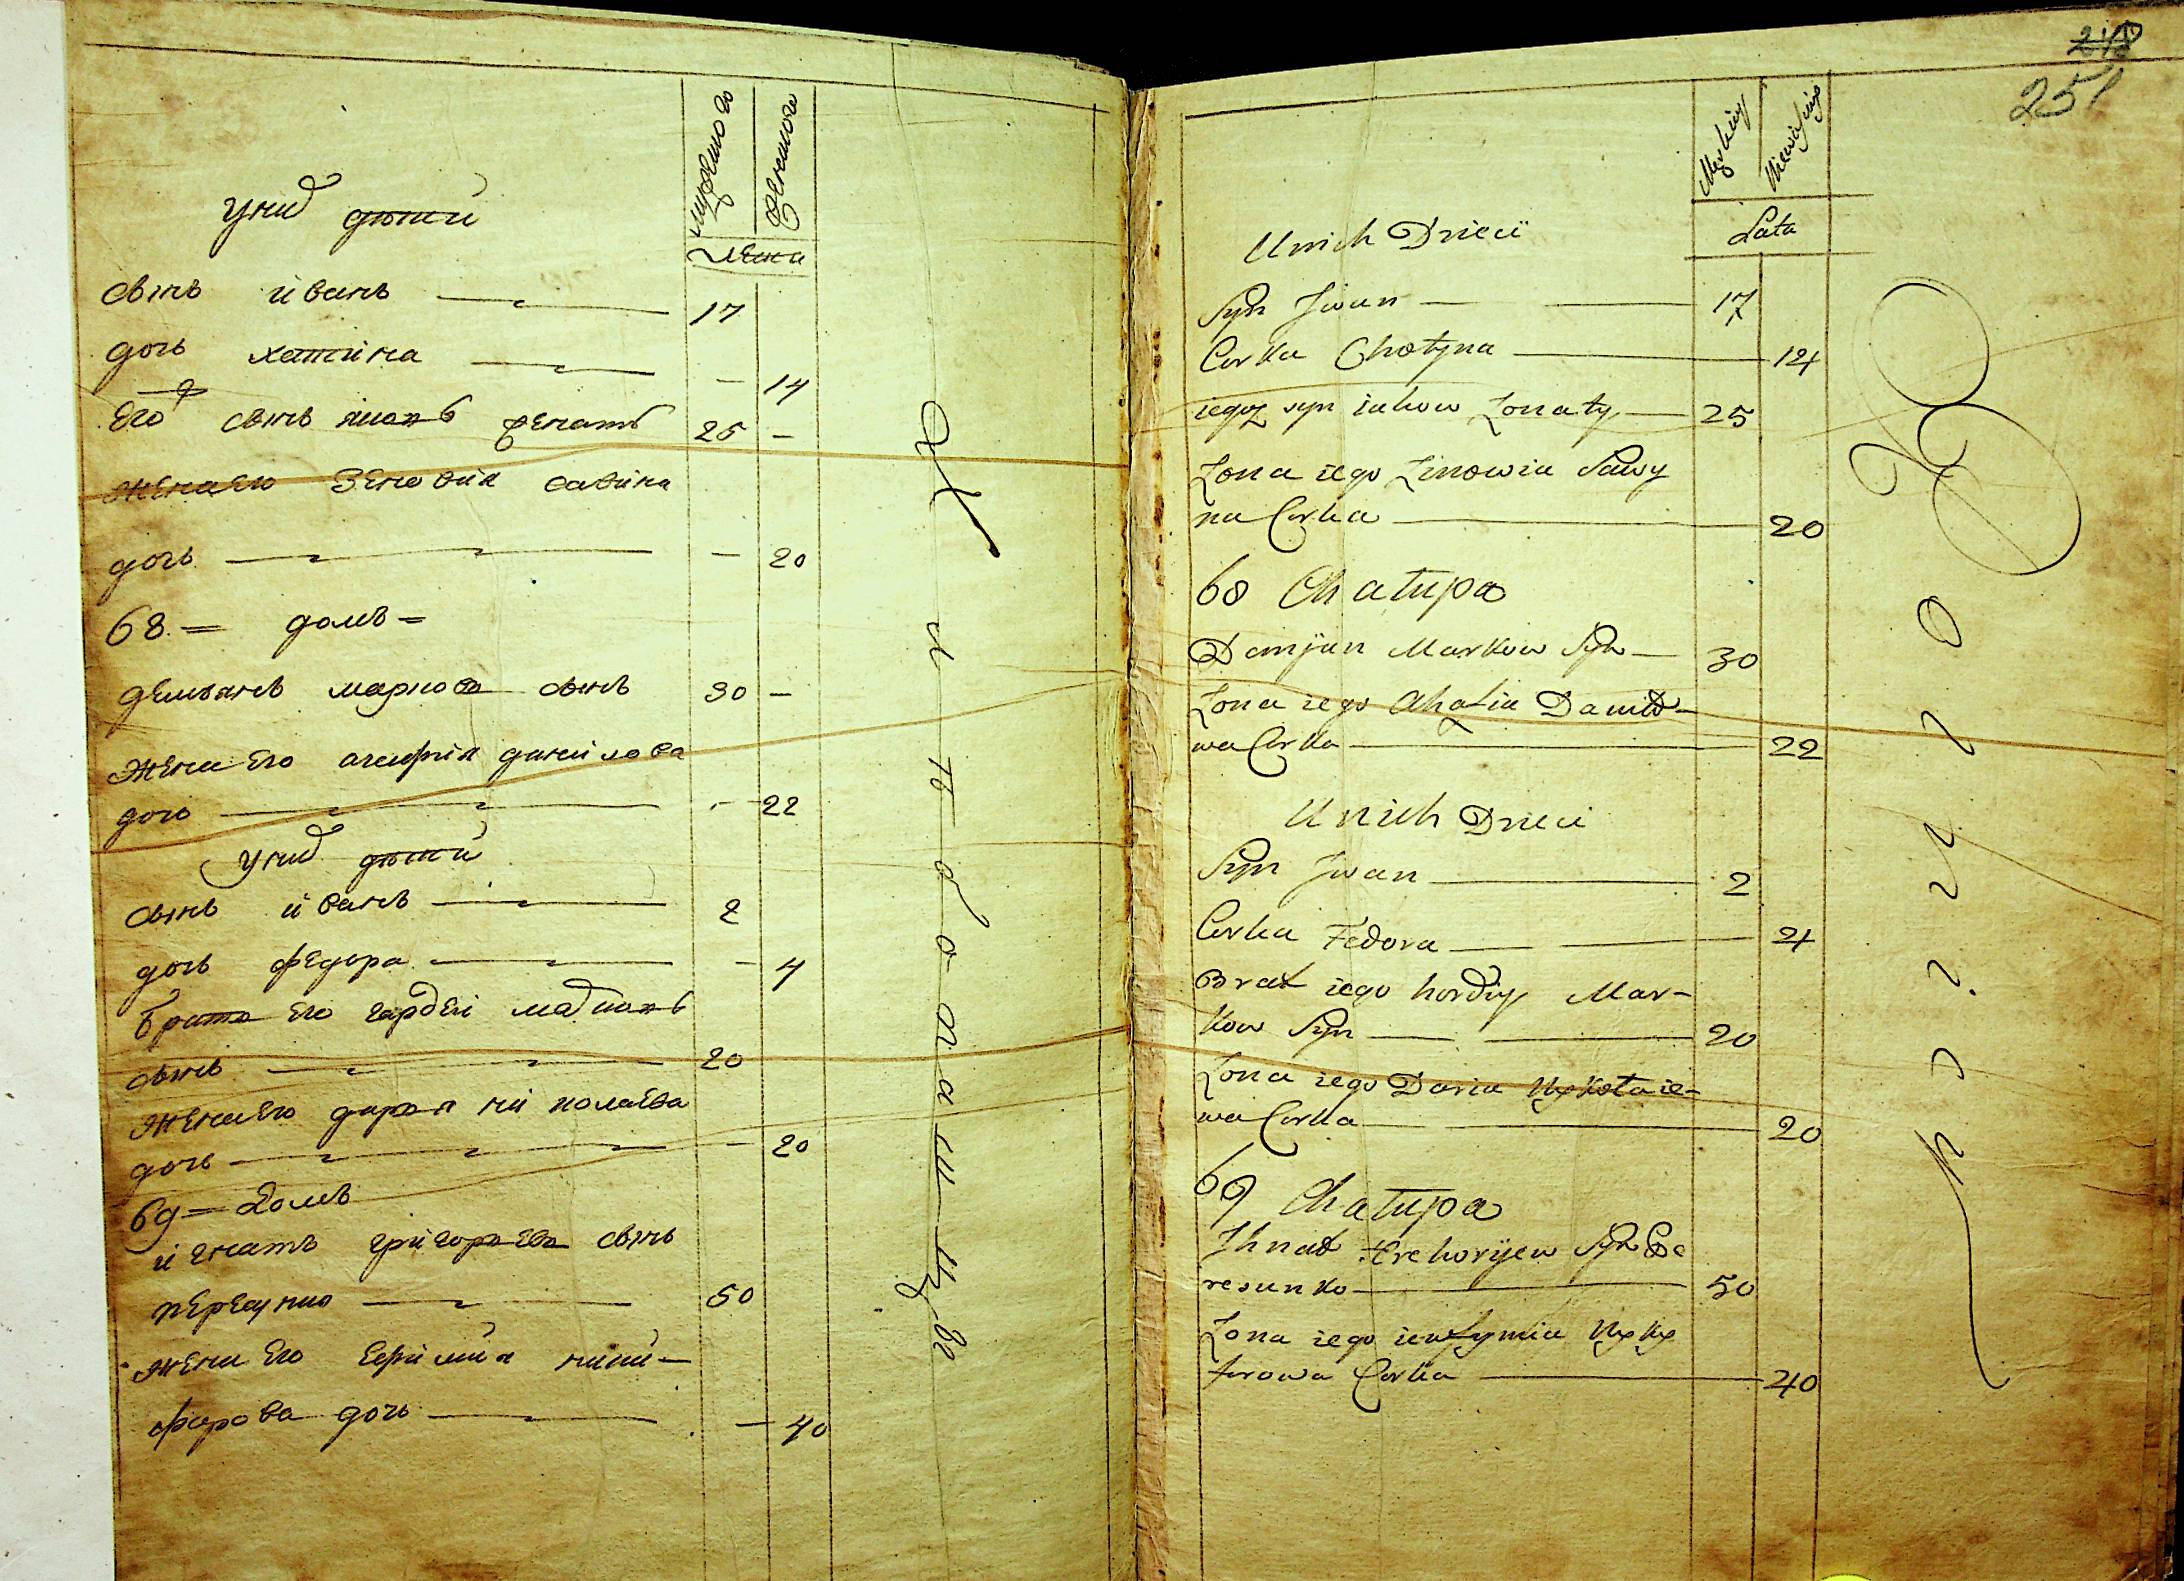 мужеска
женска
Лета
У них детей
сынъ иванъ 17
дочь хотина - 14
Его сынъ яковъ женатъ 25 -
жена его Зеновия савина
дочь - 20
68 = домъ =
демьянъ марковъ сынъ 30 -
жена его агафия данилова
дочь - 22
У них детей
сынъ иванъ 2
дочь федора - 4
братъ его гордей марковъ
сынъ 20
жена его дария николаева
дочь - 20
69 = домъ
игнатъ григорьевъ сынъ
пересунко 50
жена его ефимия ники-
форова дочь - 40
251
Męskiey
Niewieskiey
Lata
Unich Dzieci
Syn Jwan 17
Corka Chotyna 14
iegoż syn iakow Zonaty 25
Zona iego Zinowia Sawy
na Corka 20
68 Chatupa
Damjan Markow Syn 30
Zona iego Ahafia Daniło-
wa Corka 22
Unich Dzieci
Syn Jwan 2
Corka Fedora 4
Brat iego hordiy Mar-
kow Syn 20
Zona iego Daria Nykołaie-
wa Corka 20
69 Chatupa
Jhnat Hrehoryiew Syn Pe
resunko 50
Zona iego iewfymia Nyky
forowa Corka 40